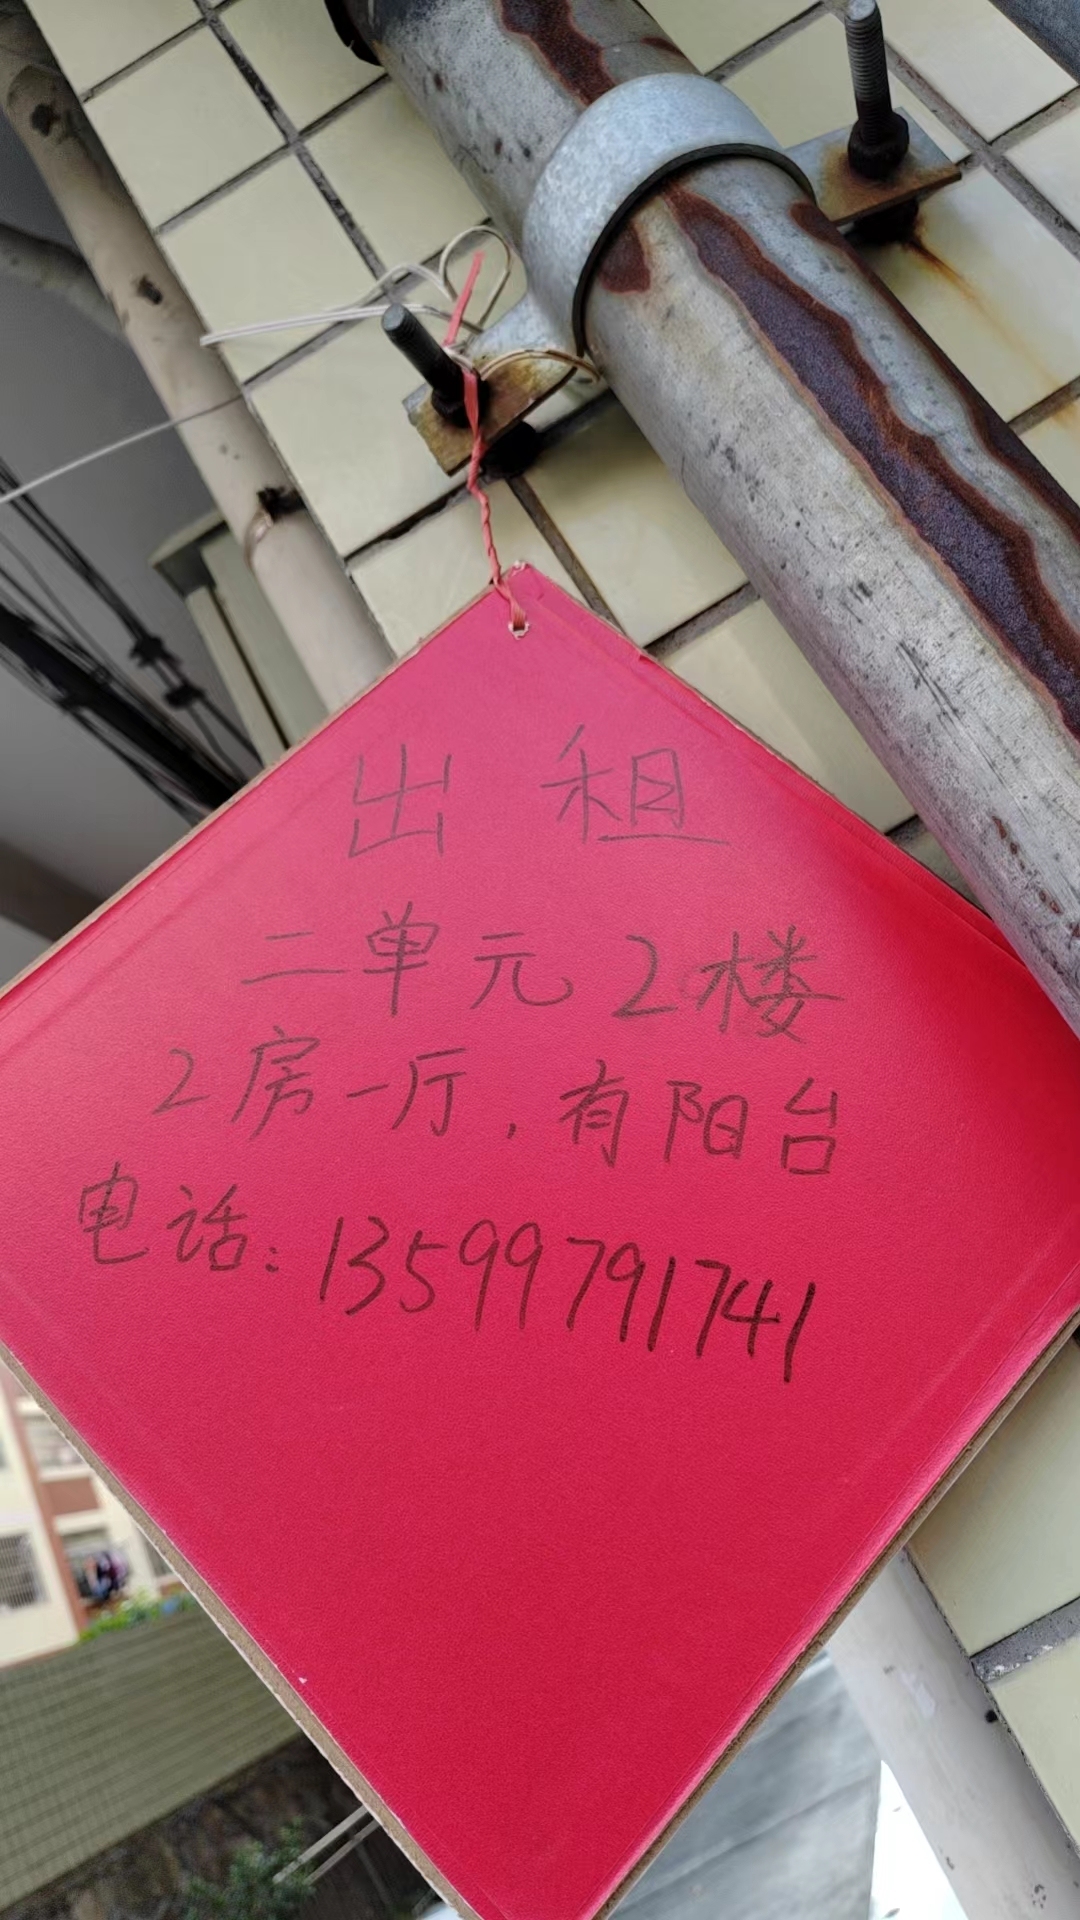 出租
二单元2楼
2房一厅，有阳台
电话：13599791741